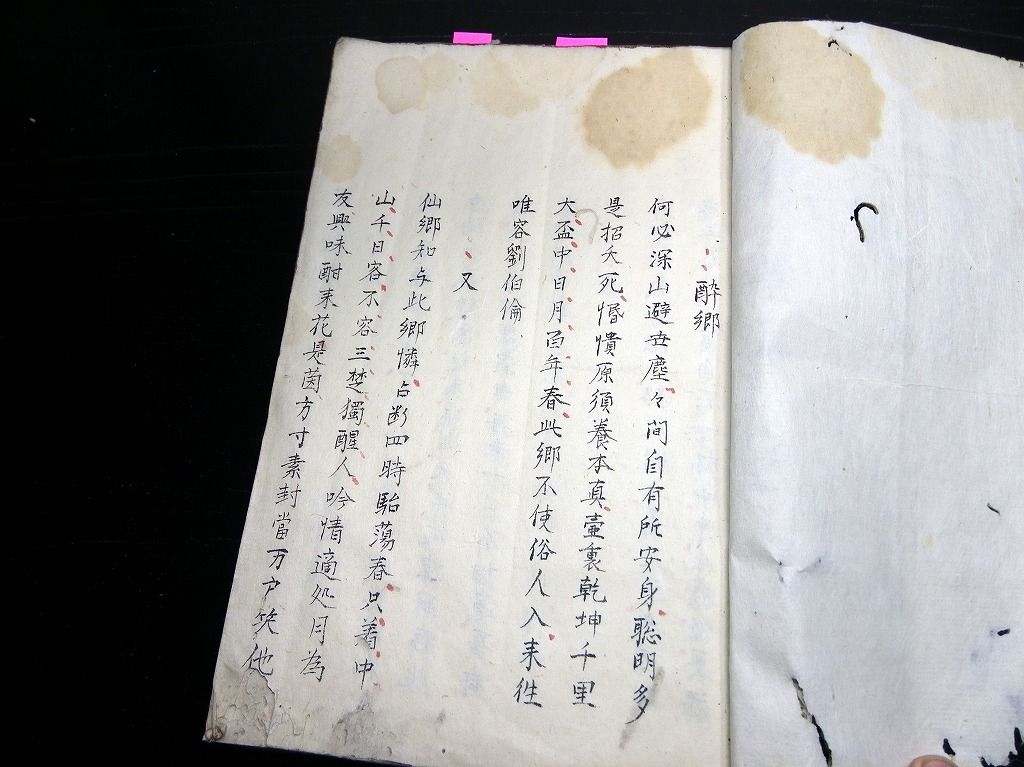 醉鄉
何必深山避世塵々間自有所安身聡明多
是招夭死惛憒原須養本真壷裏乾坤千里
大盃中日月百年春此鄉不使俗人入来往
唯容劉伯倫
又
仙鄉和与此鄉憐占断四時駘蕩春只着中
山千日客不容三楚獨醒人吟情適処月為
友興味酣来花是茵方寸素封當万户笑他